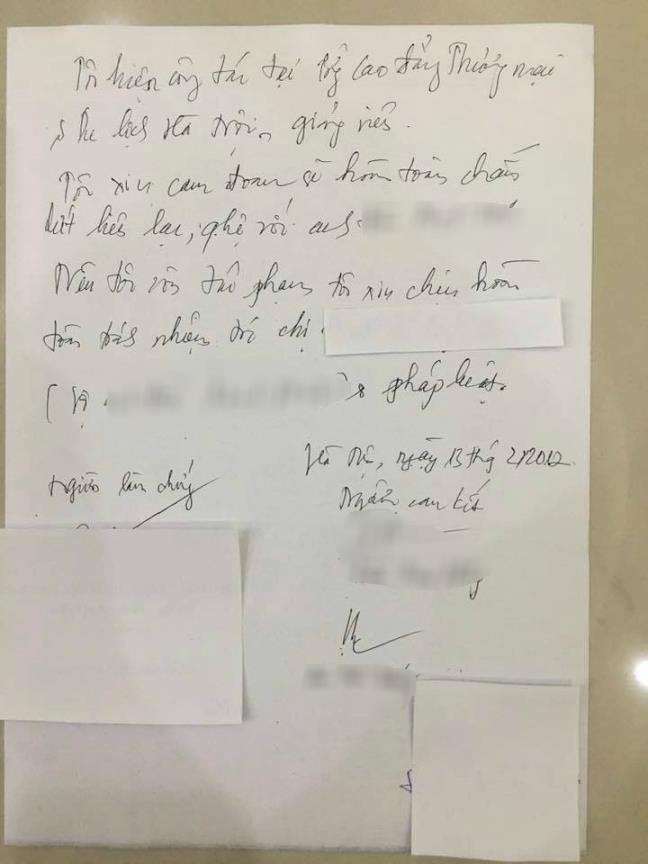 Tôi hiện công tác tại Tr Cao đẳng Thương mại
& Du lịch Hà Nội, giảng viên.
Tôi xin cam đoan sẽ hoàn toàn chấm
dứt liên lạc, qhệ với anh
Nếu tôi còn tái phạm tôi xin chịu hoàn
toàn trách nhiệm trc chị
( Vợ & pháp luật.
Hà Nội, ngày 13 thág 2/2012
Người làm chứng
Người cam kết